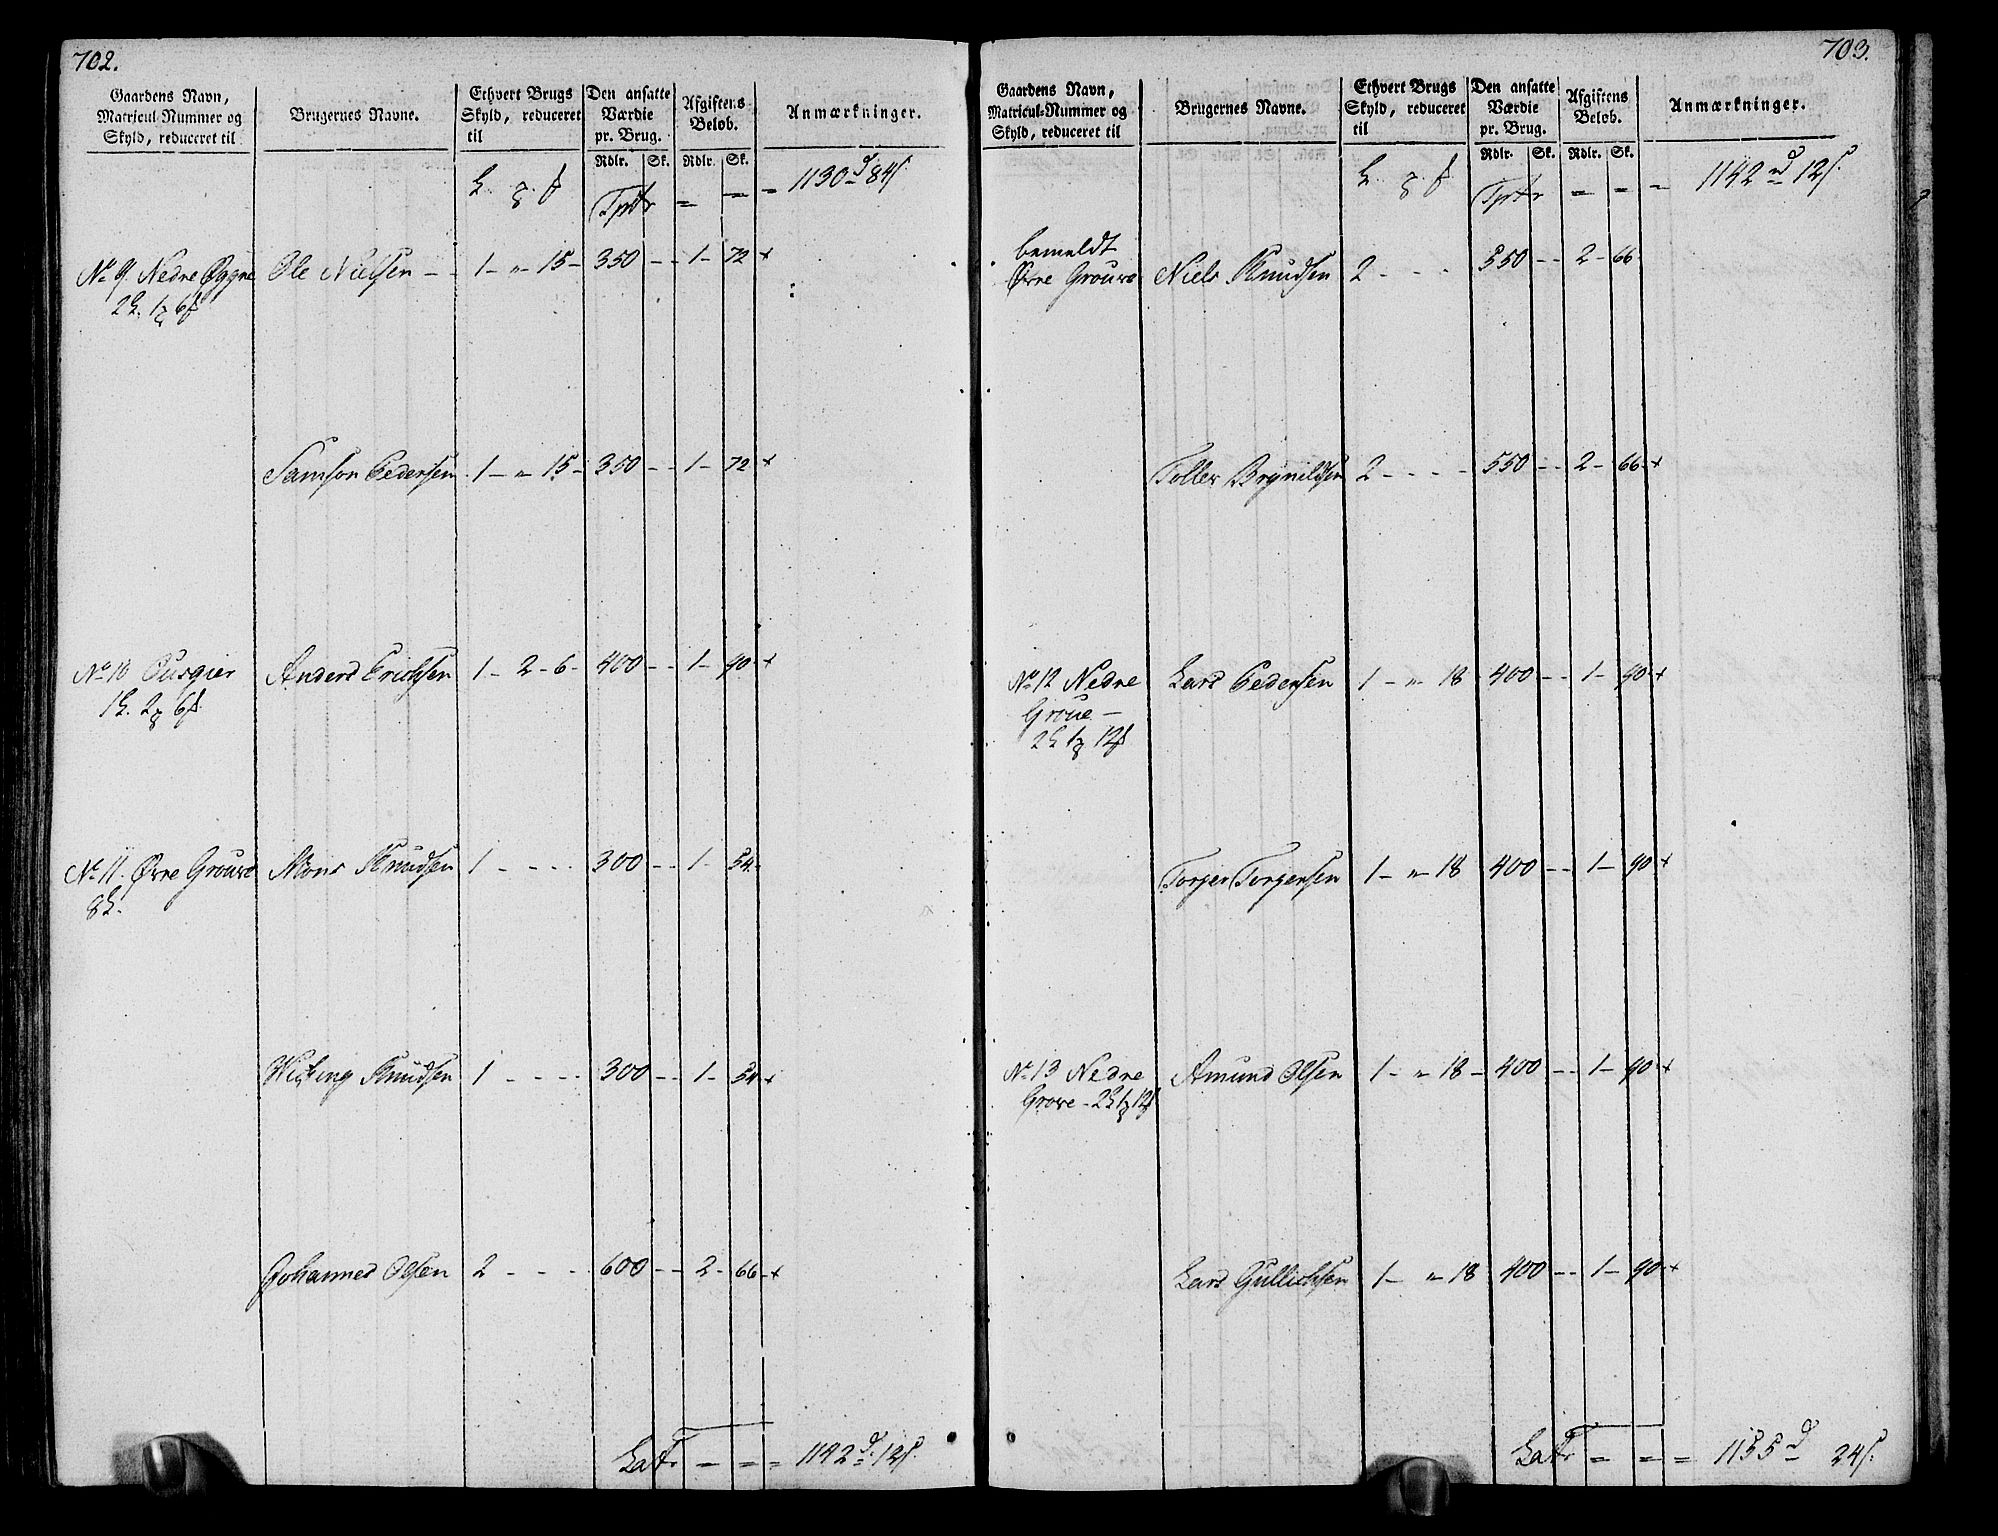 702.
Gaardens Navn, Matricul-Nummer og Skyld, reduceret til
Brugernes Navne.
Ethvert Brugs Skyld, reduceret til
Den ansatte Værdie pr. Brug.
Afgiftens Beløb.
Anmærkninger.
Rdlr. Sk. Rdlr. Sk.
Tptr = = = 1130 d 84 s.
No 9. Nedre Øygne Ole Nielsen - 1 - " 15 - 350 - - 1 - 72 +
2
Samson Pedersen 1 - " 15 - 350 - - 1 - 72 +
No 10 Anders Erichsen 1 - 2 - 6 - 400 - - 1 - 90 +
No 11. Øvre Grouve Mons Knudsen 1 - - - - 300 - - 1 - 54
Wiching Knudsen 1 - - - - 300 - - 1 - 54 +
Johannes Olsen 2 - - - 600 - - 2 - 66 +
Latr = = = 1142 d 12 s.
703.
Gaardens Navn, Matricul-Nummer og Skyld, reduceret til
Brugernes Navne.
Ethvert Brugs Skyld, reduceret til
Den ansatte Værdie pr. Brug.
Afgiftens Beløb.
Anmærkninger.
Rdlr. Sk. Rdlr. Sk.
Tptr = = = 1142 d 12 s.
bemeldt
Øvre Grouve Niels Knudsen 2 - - - 550 - - 2 - 66
Toller Brynildsen 2 - - - - 550 - - 2 - 66 +
No 12 Nedre Lars Pedersen 1 - " 18 - 400 - - 1 - 90 +
Groue -
Torger Torgersen 1 - " 18 - 400 - - 1 - 90 +
No 13 Nedre Amund Olsen 1 - " 18 - 400 - - 1 - 90 +
Growe -
Lars Gullichsen 1 - " 18 - 400 - - 1 - 90 +
Latr = = = 1155 d 24 s.